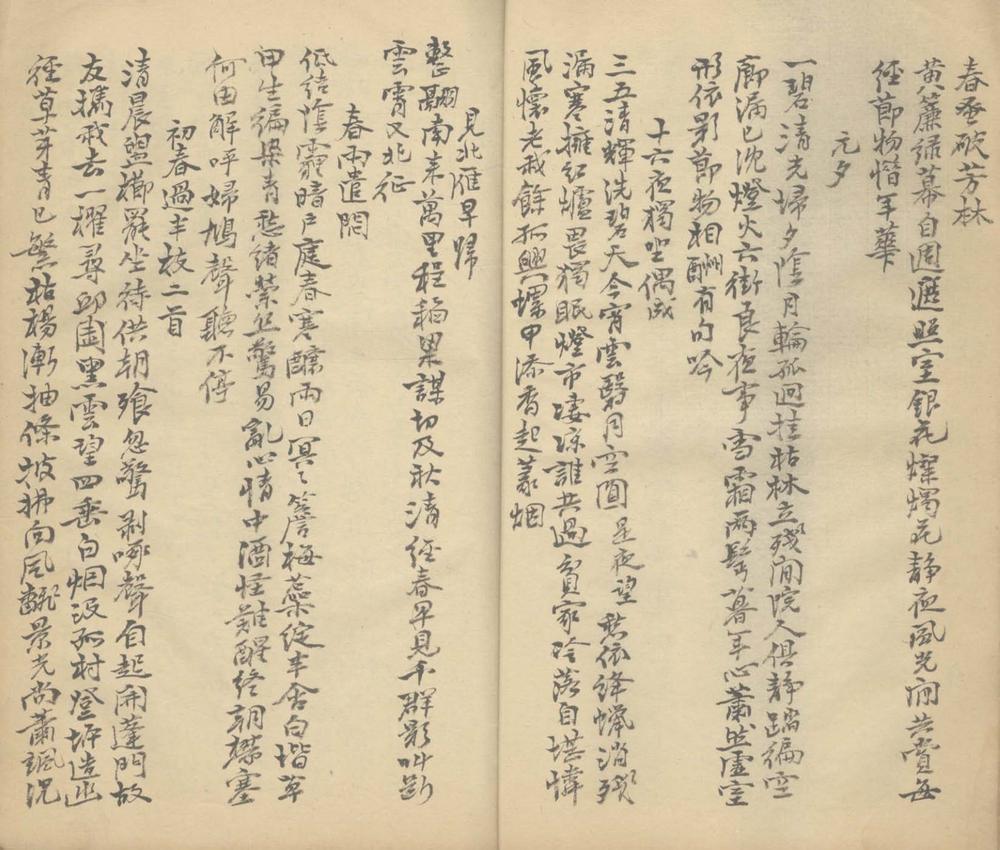 春蚕破芳林
黄簾緑幕自週遮照室銀花燦燭花静夜風光閒共賞每
徑節物惜年華
元夕
一碧清光埽夕陰月輪孤迥挂枯林立殘閒院人俱静踏徧空
廊漏已沈燈火六街良夜事雪霜兩鬂暮年心蕭然虛室
形依影節物相酬有句吟
十六夜獨坐偶成
三五清輝洗碧天今宵雲翳月空圓是夜望愁依絳蠟消殘
漏寒擁紅爐畏獨眠燈市凄凉誰共過貧家冷落自堪憐
風懷老我餘孤興螺甲添香起篆烟
見北雁早歸
整翮南来萬里程稻粱謀切及秋清經春早見千群影叫斷
雲霄又北征
春雨遣悶
低結陰霾暗戶庭春寒釀雨日冥〻簷梅蘂綻半含白堦草
甲生徧染青愁緒縈絲驚易亂心情中酒怪難醒終朝襟塞
何由解呼婦鳩聲聽不停
初春過半枝二首
清晨盥櫛罷坐待供朝飧忽驚剥啄聲自起開蓬門故
友攜我去一櫂尋邱園黑雲望四垂白烟没孤村登岍造幽
徑草芽青已繁枯楊漸抽條披拂向風翻景光尚蕭颯況